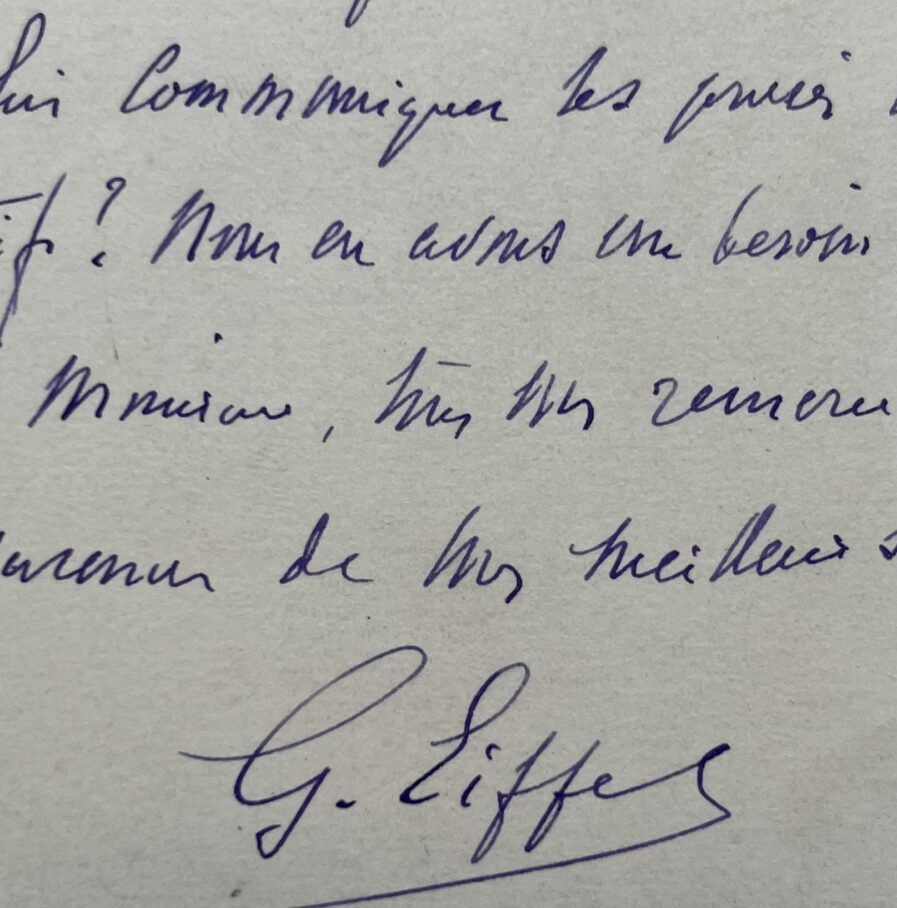 lui communiquer les
? Nous en avons un besoin
Monsieur, tous nos remercie
de nos meilleurs
G. Eiffel